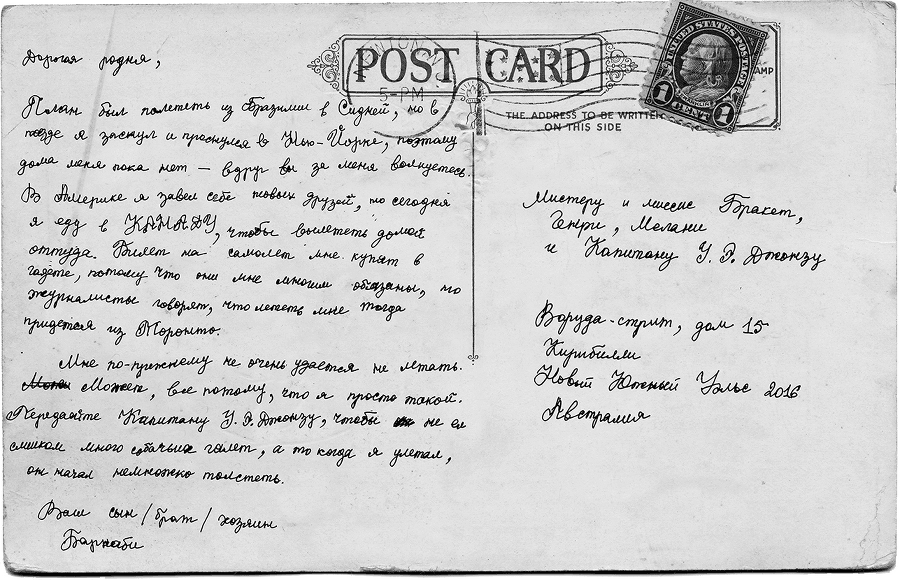 Дорогая родня,
План был полететь из Бразилии в Сидней, но в
поезде я заснул и проснулся в Нью-Йорке, поэтому
дома меня пока нет — вдруг вы за меня волнуетесь.
В Америке я завел себе новых друзей, но сегодня
я еду в КАНАДУ, чтобы вылететь домой
оттуда. Билет на самолет мне купят в
газете, потому что они мне многим обязаны, но
журналисты говорят, что лететь мне тогда
придется из Торонто.
Мне по-прежнему не очень удается не летать.
Может, все потому, что я просто такой.
Передайте Капитану У. Э. Джонзу, чтобы не ел
слишком много собачьих галет, а то когда я улетал,
он начал немножко толстеть.
Ваш сын / брат / хозяин
Барнаби
POST CARD
5-PM
THE ADDRESS TO BE WRITTEN
ON THIS SIDE
UNITED STATES POSTAGE
1 CENT 1
AMP
Мистеру и миссис Бракет,
Генри, Мелани
и Капитану У. Э. Джонзу
Варуда-стрит, дом 15
Кирибилли
Новый Южный Уэльс 2016
Австралия